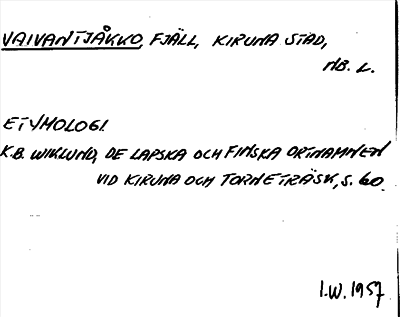 VAIVANTJÅKKO, FJÄLL, KIRUNA STAD,
NB. L.
ETYMOLOGI.
K.B. WIKLUND, DE LAPSKA OCH FINSKA ORTNAMNEN
VID KIRUNA OCH TORNETRÄSK, S. 60.
I.W. 1957.